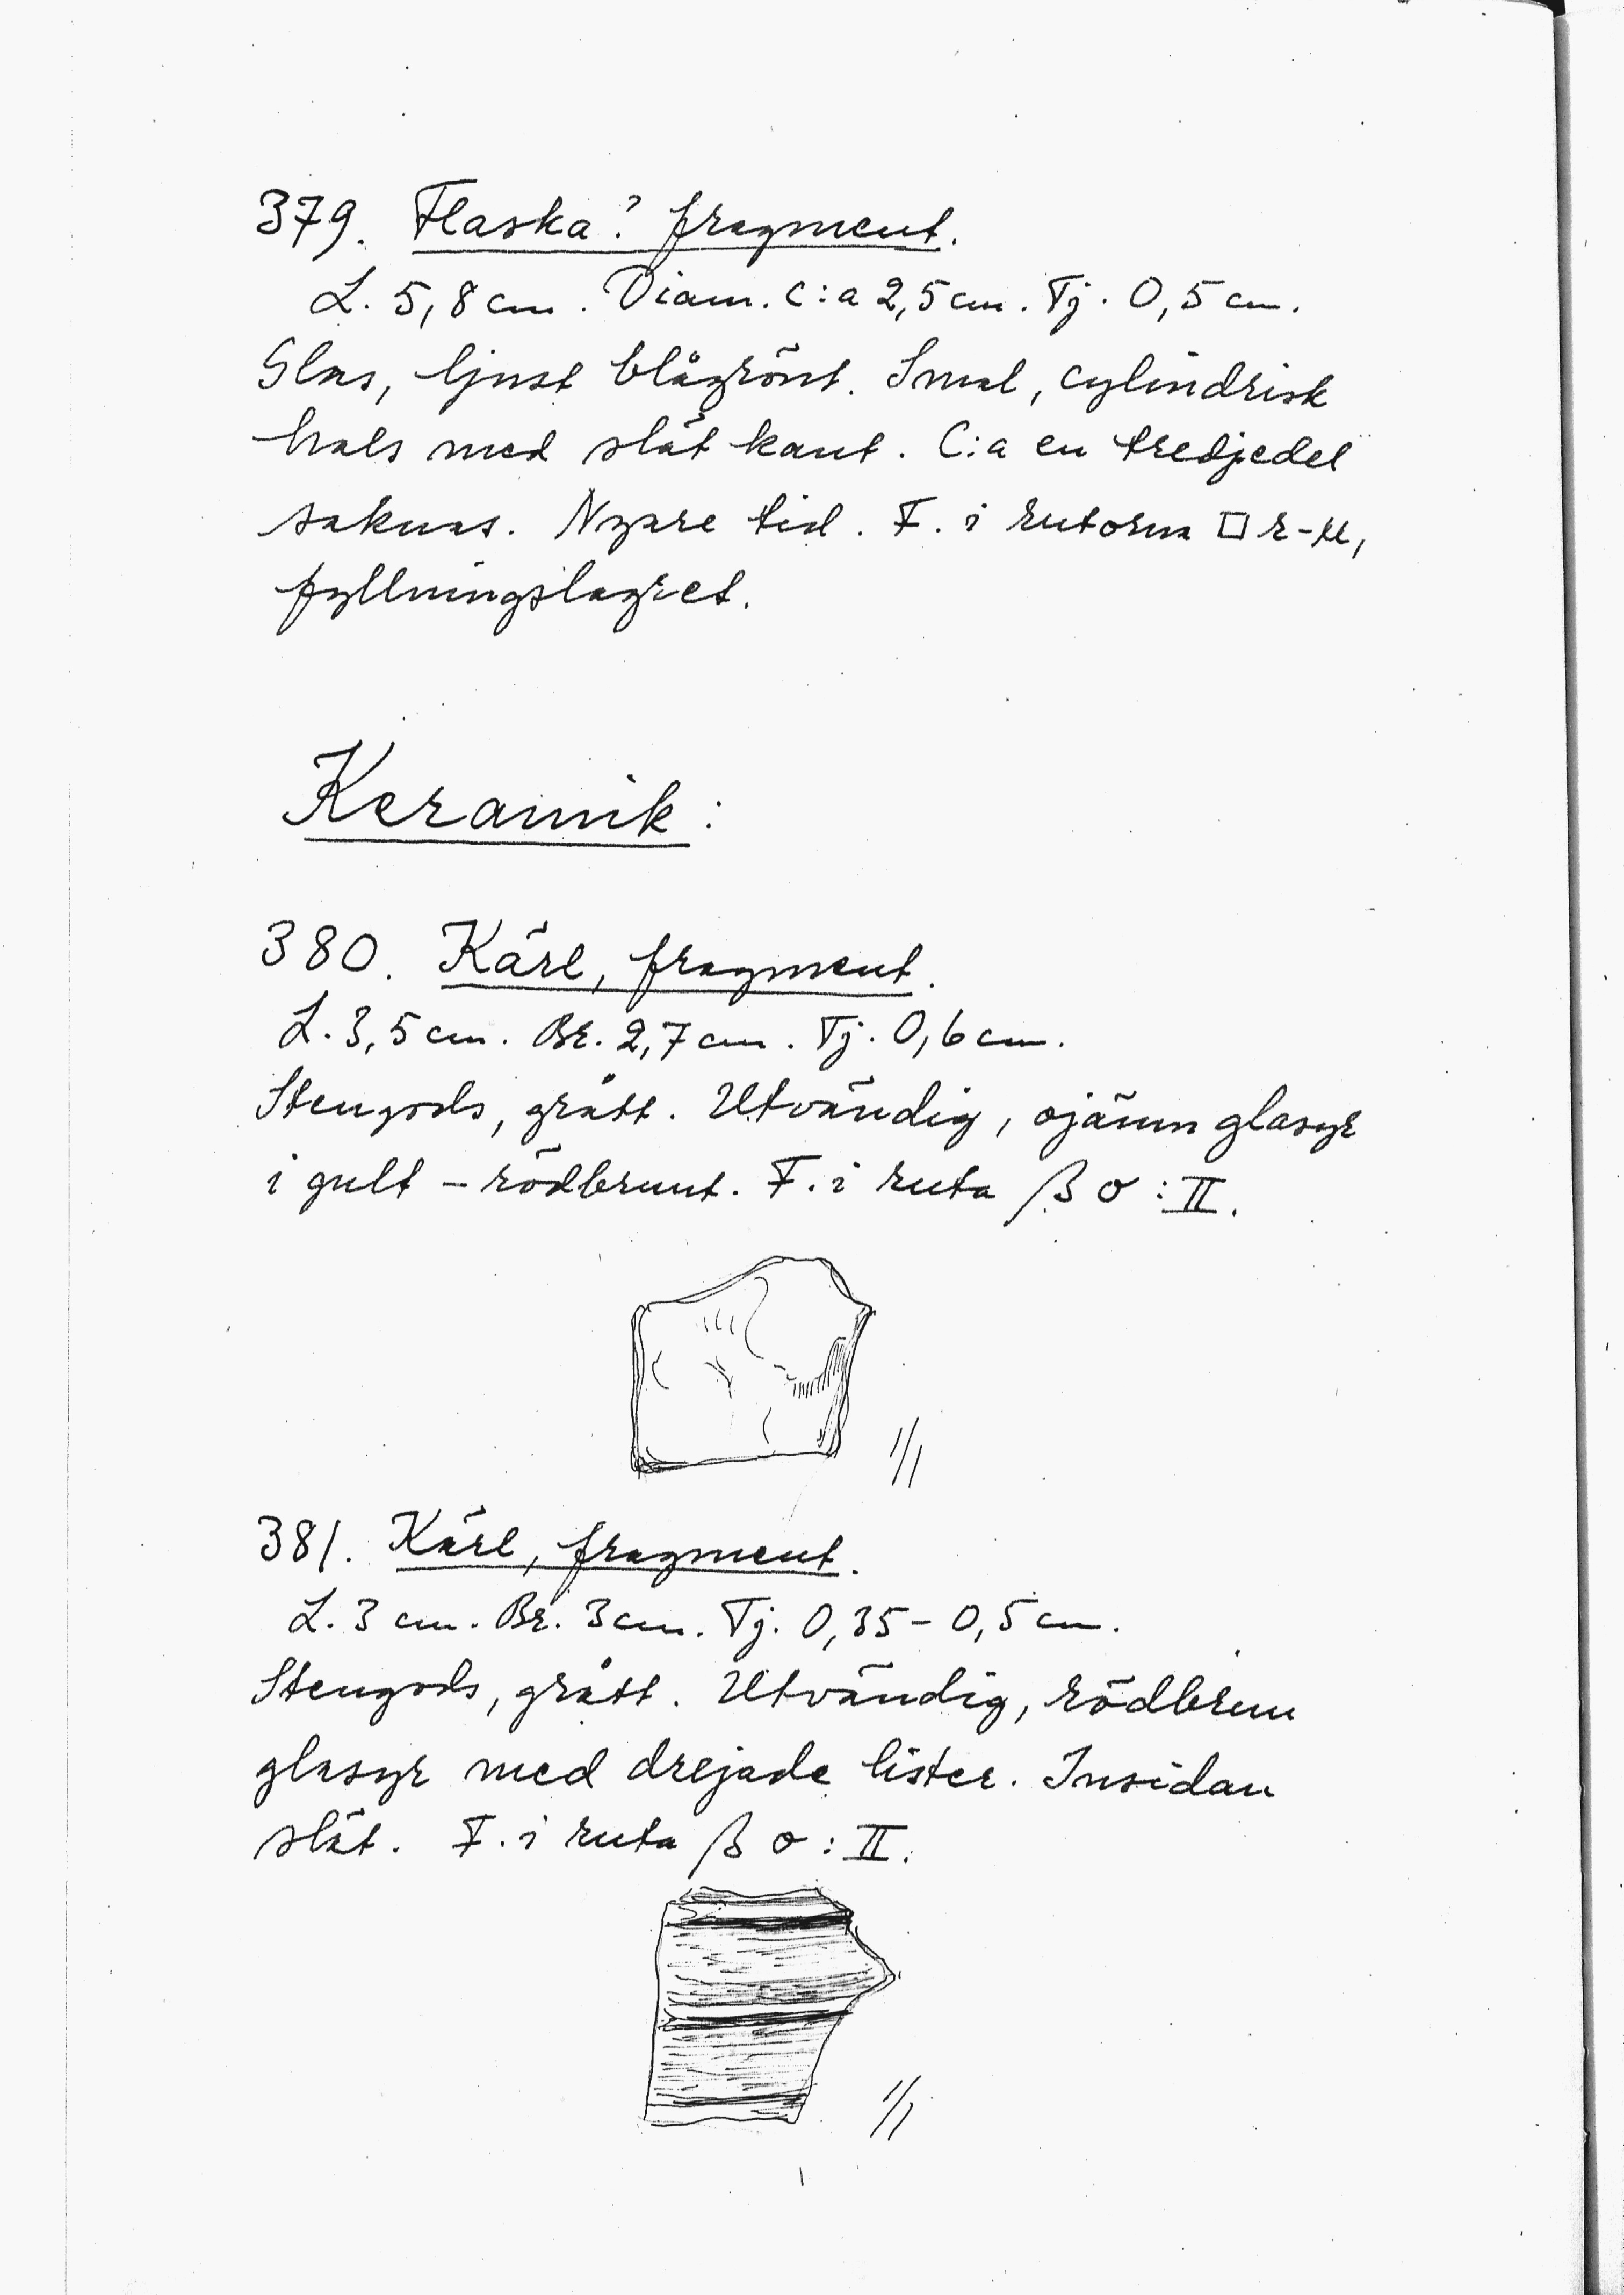 379. Flaska? fragment.
L. 5,8 cm. Diam. c:a 2,5 cm. Tj. 0,5 cm.
Glas, ljust blågrönt. Smal, cylindrisk
hals med slät kant. C:a en tredjedel
saknas. Nyare tid. F. i rutorna □ r-u,
fyllningslagret.
Keramik:
380. Kärl, fragment.
L. 3,5 cm. Br. 2,7 cm. Tj. 0,6 cm.
Stengods, grått. Utvändig, ojämn glasyr
i gult – rödbrunt. F. i ruta β σ : II.
1/1
381. Kärl, fragment.
L. 3 cm. Br. 3 cm. Tj. 0,35 – 0,5 cm.
Stengods, grått. Utvändig, rödbrun
glasyr med drejade lister. Insidan
slät. F. i ruta β σ : II.
1/1